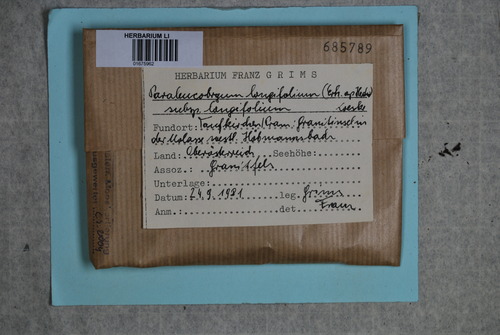 HERBARIUM LI
01675962
685789
HERBARIUM FRANZ GRIMS
Paraleucobryum longifolium (Erh. ap Hedw.)
subsp. longifolium Loeske
Fundort: Taufkirchen/Pram: Granitinsel in
der Molasse westl. Höbmannsbach
Land: Oberösterreich Seehöhe:
Assoz.: Granitfels
Unterlage:
Datum: 24.9.1991 leg. Grims
Anm. det Franz